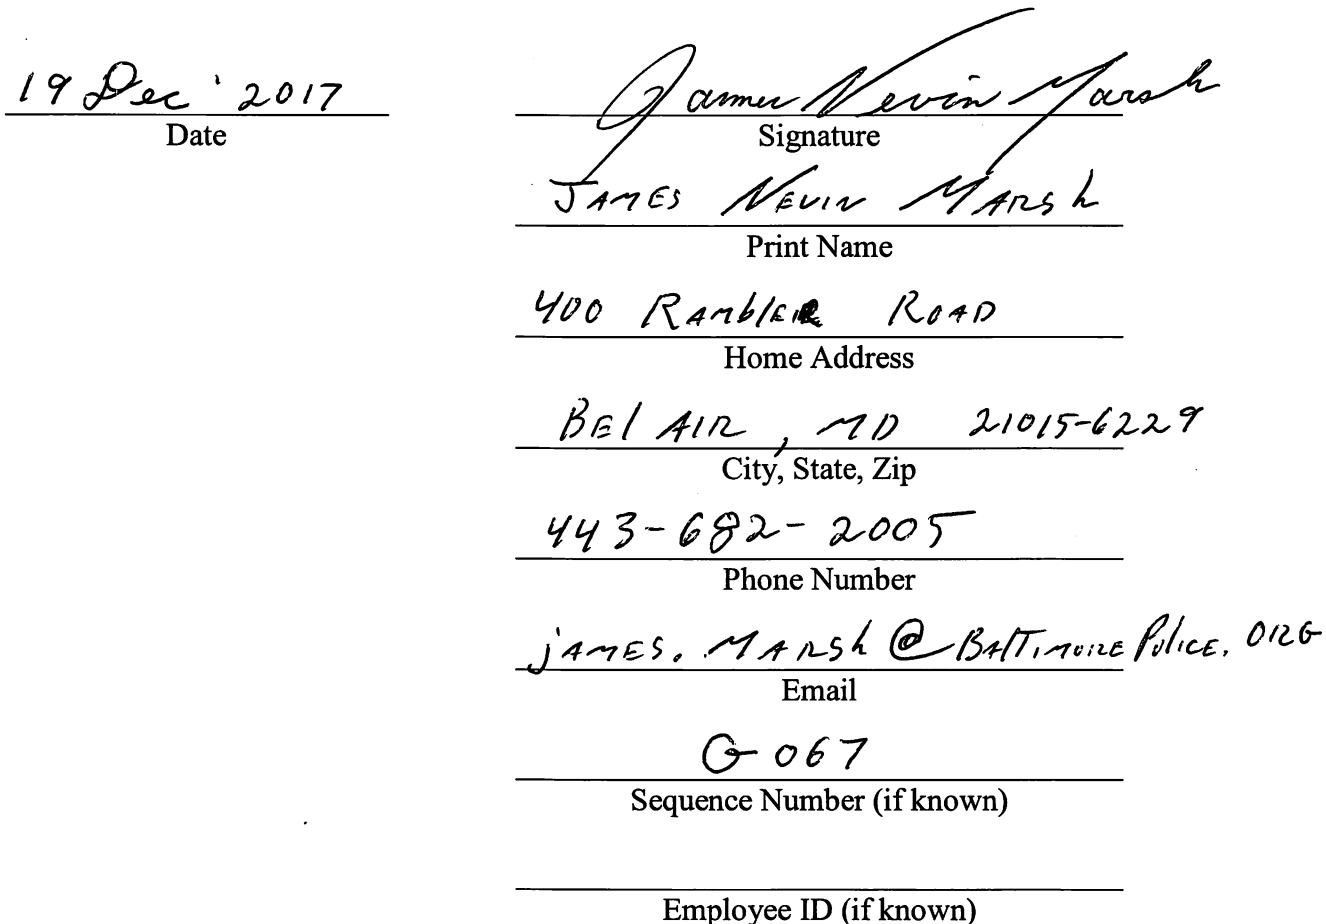 19 Dec ' 2017
Date
James Nevin Marsh
Signature
JAMES NEVIN MARSh
Print Name
400 RAmblER ROAD
Home Address
BEl AIR, MD 21015-6229
City, State, Zip
443-682-2005
Phone Number
jAMES.MARSh@BAlTIMOREPolicE.ORG
Email
G 067
Sequence Number (if known)
Employee ID (if known)